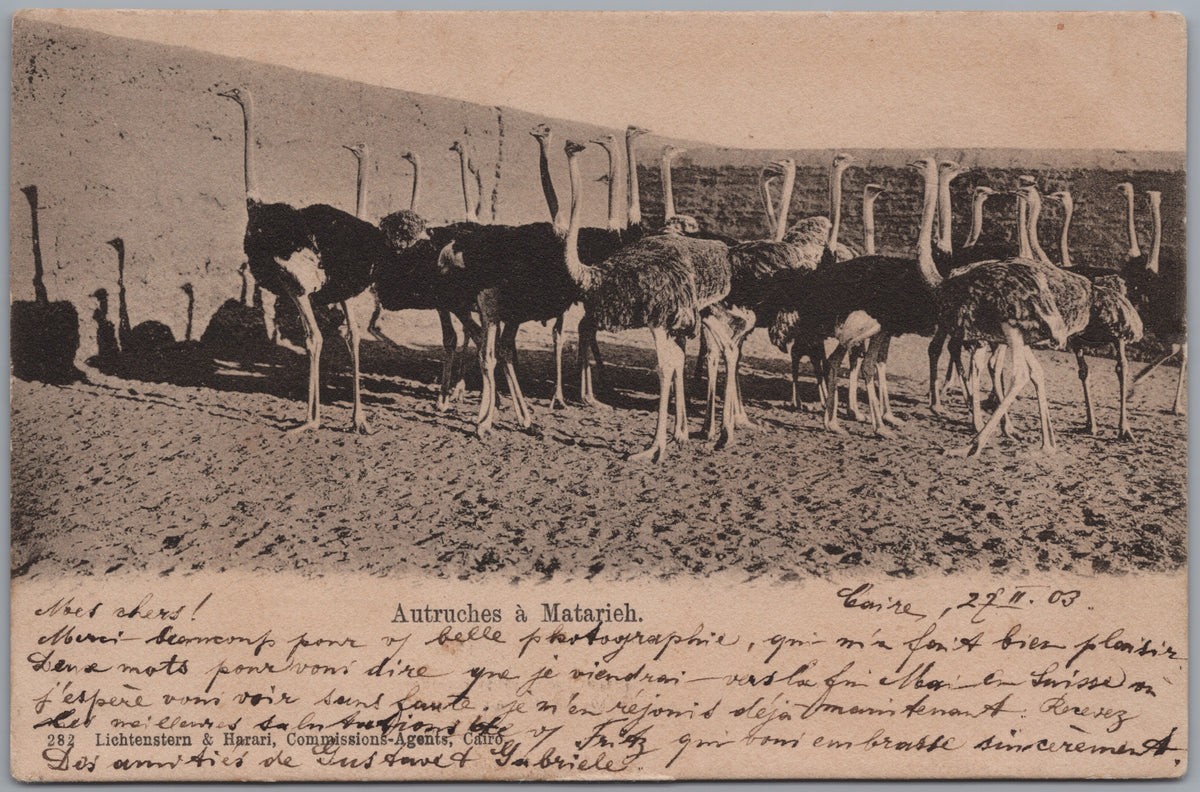 Autruches à Matarieh.
Caire, 27 II. 03.
Mes chers!
Merci beaucoup pour v/ belle photographie, qui m'a fait bien plaisir.
Deux mots pour vous dire que je viendrai vers la fin Mai en Suisse où
j'espère vous voir sans faute, je m'en réjouis déjà maintenant. Recevez
les meilleures salutations de v/ Fritz qui vous embrasse sincèrement.
282 Lichtenstern & Harari, Commissions-Agents, Cairo
Des amitiés de Gustave & Gabriele.